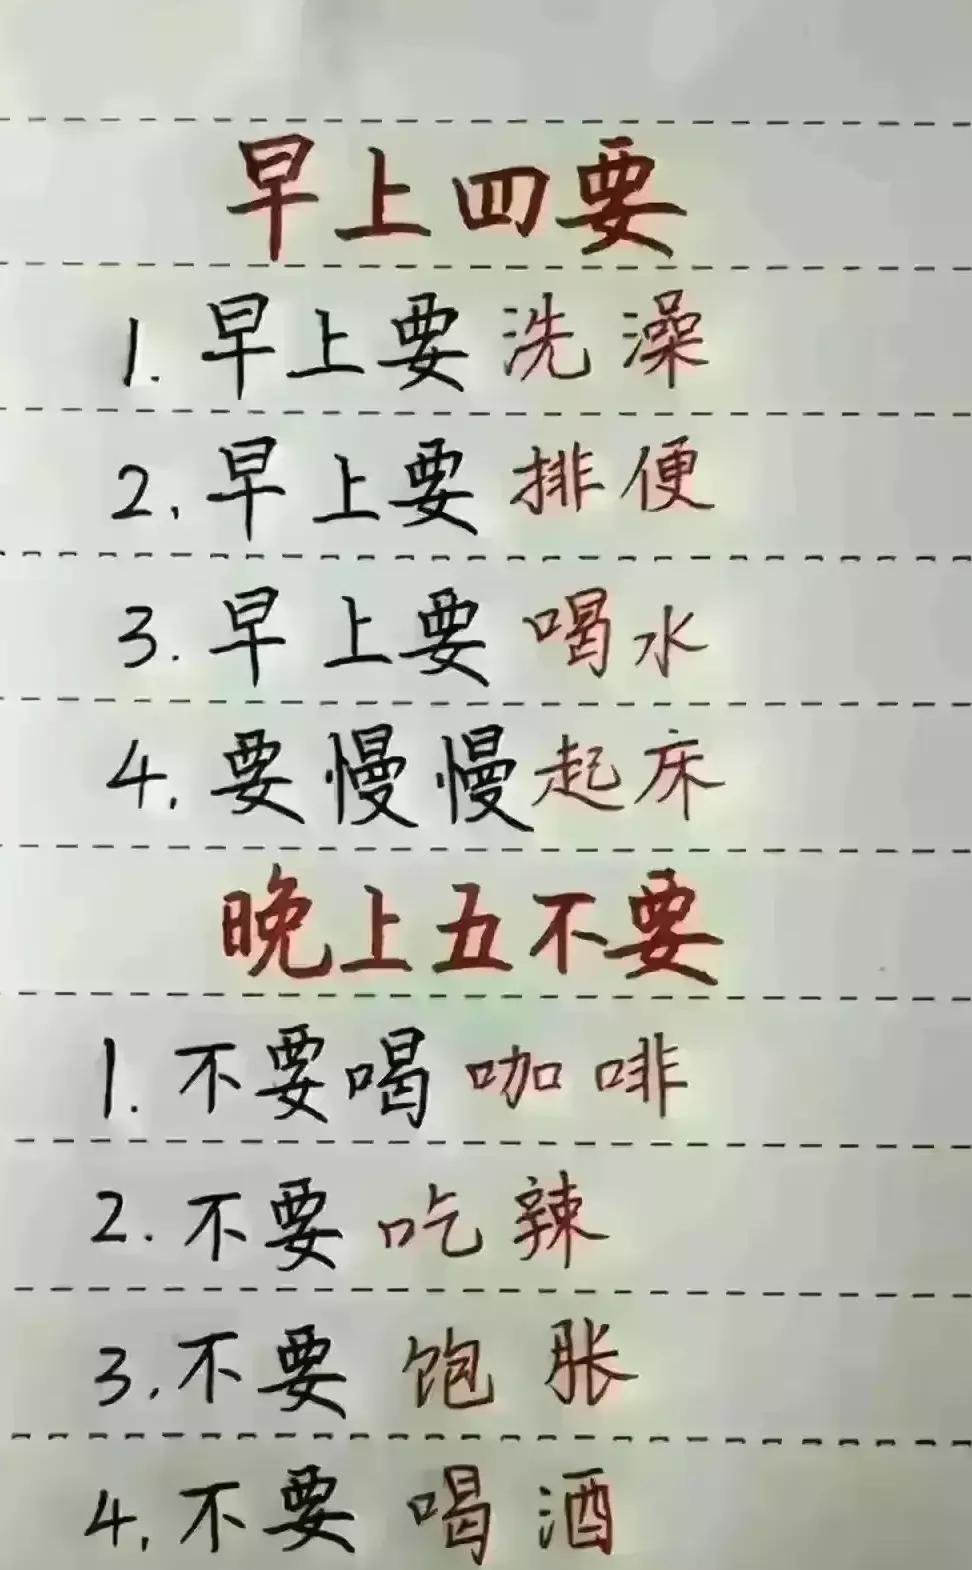 早上四要
1. 早上要洗澡
2. 早上要排便
3. 早上要喝水
4. 要慢慢起床
晚上五不要
1. 不要喝咖啡
2. 不要吃辣
3. 不要饱胀
4. 不要喝酒